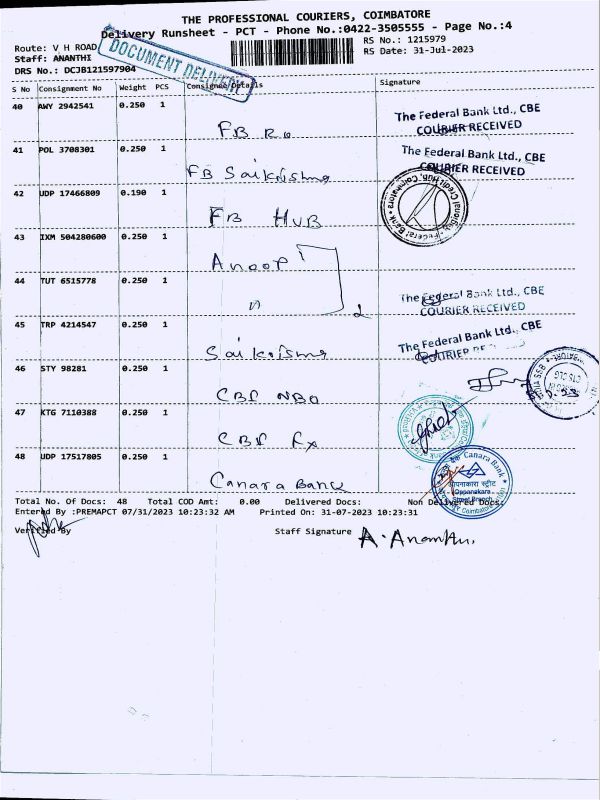 THE PROFESSIONAL COURIERS, COIMBATORE
Delivery Runsheet - PCT - Phone No.:0422-3505555 - Page No.:4
Route: V H ROAD
Staff: ANANTHI
DRS No.: DCJB121597904
DOCUMENT DELIVERY
RS No.: 1215979
RS Date: 31-Jul-2023
S No Consignment No Weight PCS Consignee Details Signature
40 AWY 2942541 0.250 1
FB Ro
The Federal Bank Ltd., CBE
COURIER RECEIVED
41 POL 3708301 0.250 1
FB Saikrishna
The Federal Bank Ltd., CBE
COURIER RECEIVED
42 UDP 17466809 0.190 1
FB HUB
Federal Bank
Credit Hub, Coimbatore
43 IXM 504280600 0.250 1
Anoop
44 TUT 6515778 0.250 1
The Federal Bank Ltd., CBE
COURIER RECEIVED
45 TRP 4214547 0.250 1
Saikrishna
The Federal Bank Ltd., CBE
46 STY 98281 0.250 1
CBE NBO
47 KTG 7110388 0.250 1
CBE Fx
48 UDP 17517805 0.250 1
Canara Bank
Canara Bank
ओपनाकारा स्ट्रीट
Oppanakara
Street Branch
Coimbatore
Total No. Of Docs: 48 Total COD Amt: 0.00 Delivered Docs: Non Delivered Docs:
Entered By :PREMAPCT 07/31/2023 10:23:32 AM Printed On: 31-07-2023 10:23:31
Verified By Staff Signature A. Ananthi